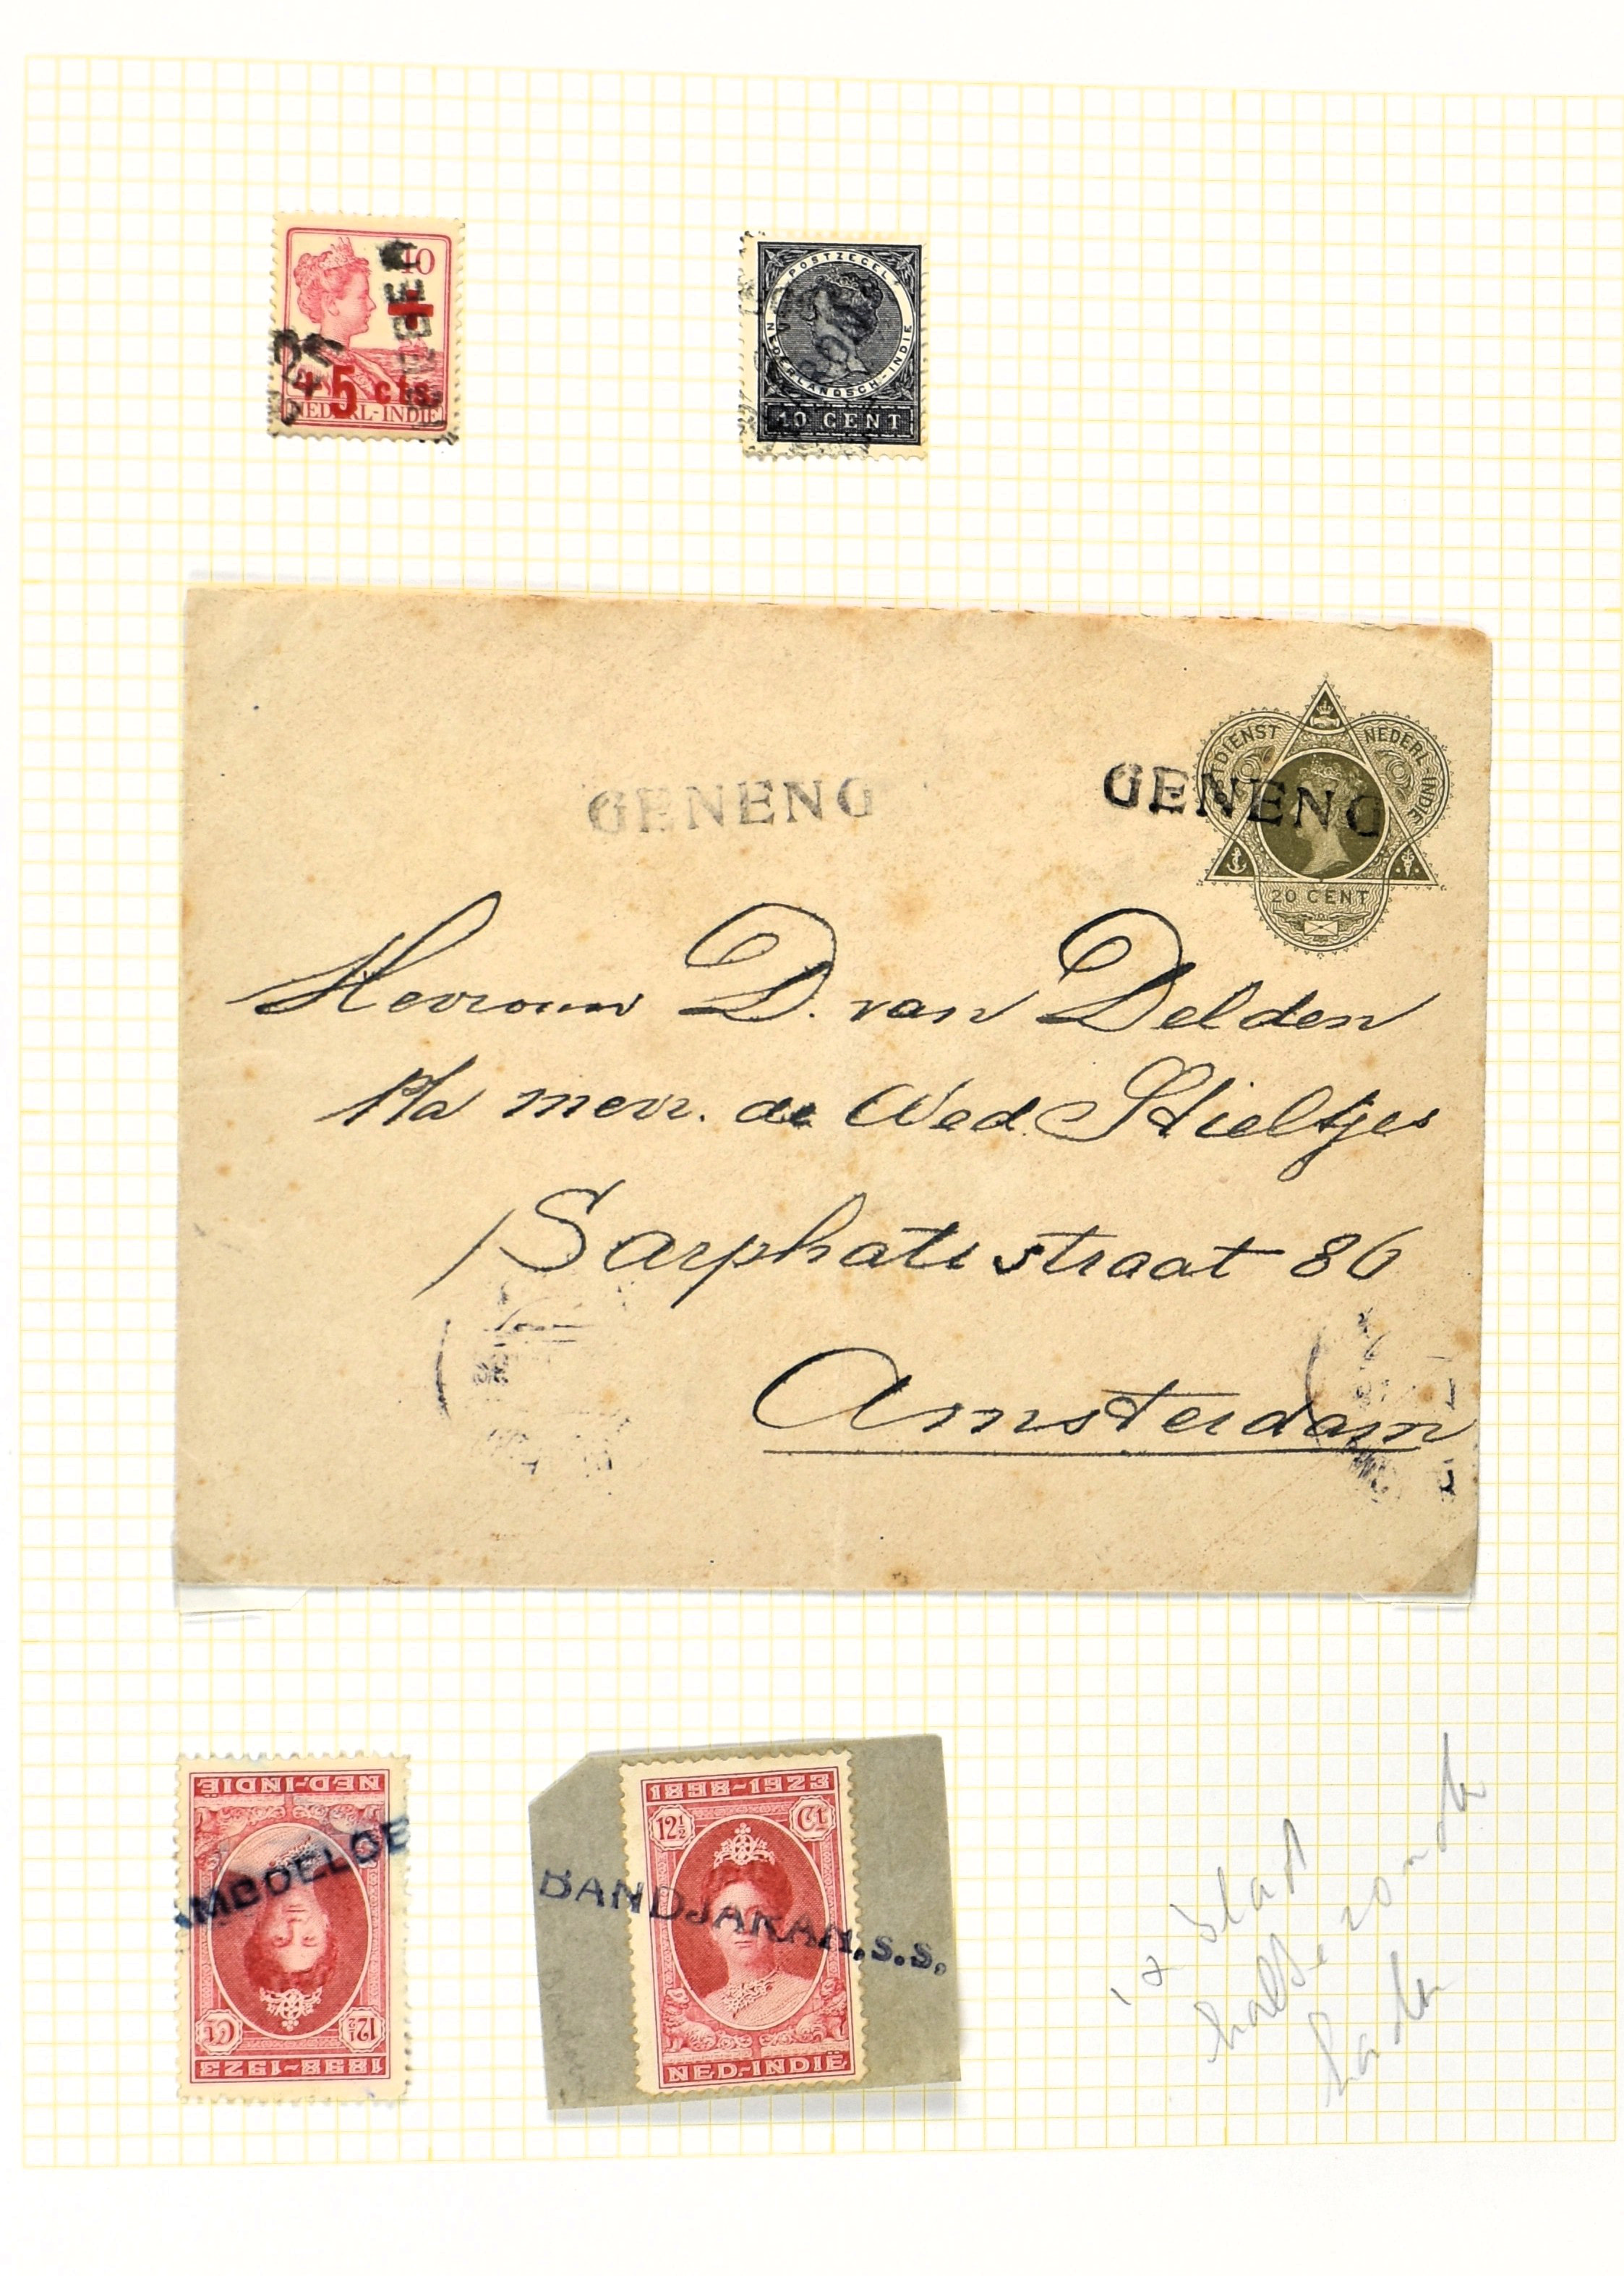 10
+ 5 cts.
NEDERL-INDIE
POSTZEGEL
NEDERLANDSCH-INDIE
10 CENT
POSTDIENST NEDERL-INDIE
GENENG
GENENG
20 CENT
Mevrouw D. van Delden
P/a mevr. de Wed. Stieltjes
Sarphatistraat 86
Amsterdam
NED-INDIË
AMBOELOE
12½ Ct
1898-1923
1898-1923
12½ Ct
BANDJARAN.S.S.
NED-INDIË